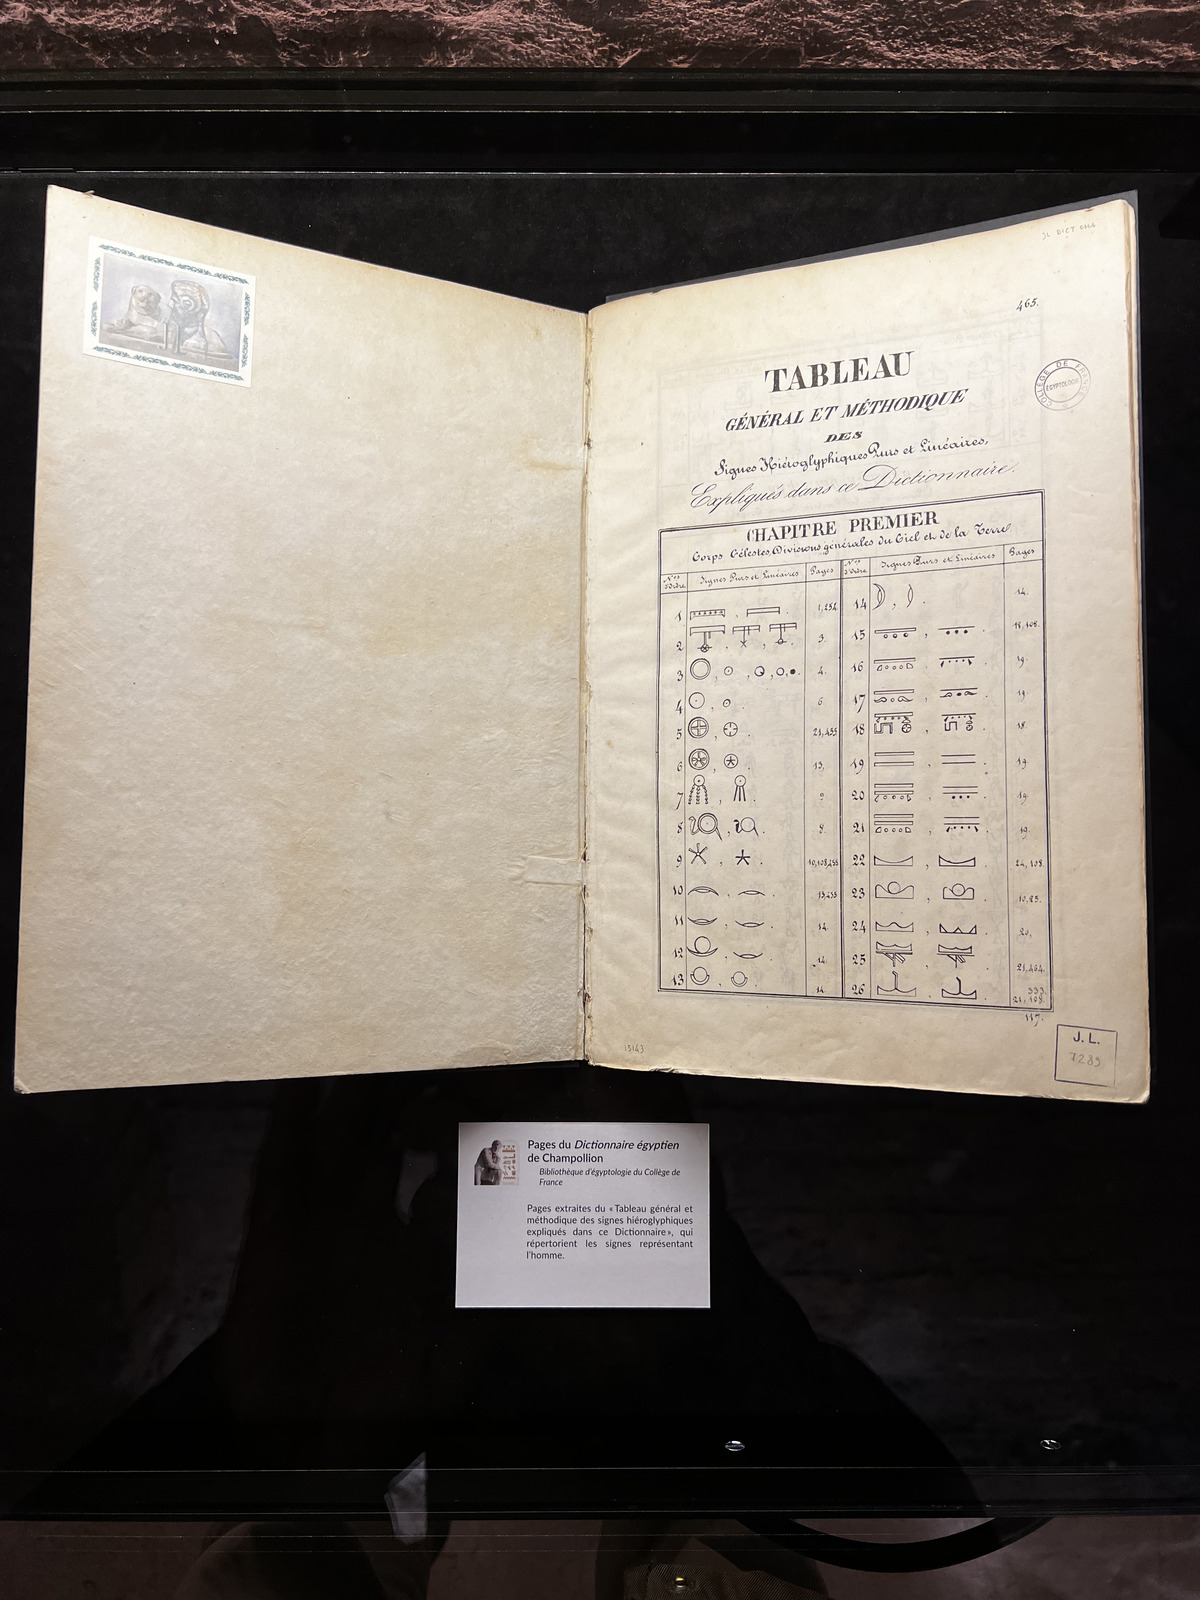 JL DICT CHA
465.
TABLEAU
GÉNÉRAL ET MÉTHODIQUE
DES
Signes Hiéroglyphiques Purs et Linéaires,
Expliqués dans ce Dictionnaire.
COLLÈGE DE FRANCE
EGYPTOLOGIE
CHAPITRE PREMIER
Corps Célestes, Divisions générales du Ciel et de la Terre
Nos d'Ordre Signes Purs et Linéaires Pages Nos d'Ordre Signes Purs et Linéaires Pages
1 1,254 14 14.
2 3. 15 18,108.
3 4. 16 19.
4 6 17 19.
5 21,455 18 18
6 13, 19 19.
7 9 20 19.
8 8. 21 19.
9 22 24,108.
10 13,455 23 10,85.
11 14. 24 20,
12 14. 25 21,464.
13 14 26 333. 21,108.
117.
15143
J. L.
7289
Pages du Dictionnaire égyptien
de Champollion
Bibliothèque d'égyptologie du Collège de
France
Pages extraites du « Tableau général et
méthodique des signes hiéroglyphiques
expliqués dans ce Dictionnaire », qui
répertorient les signes représentant
l'homme.